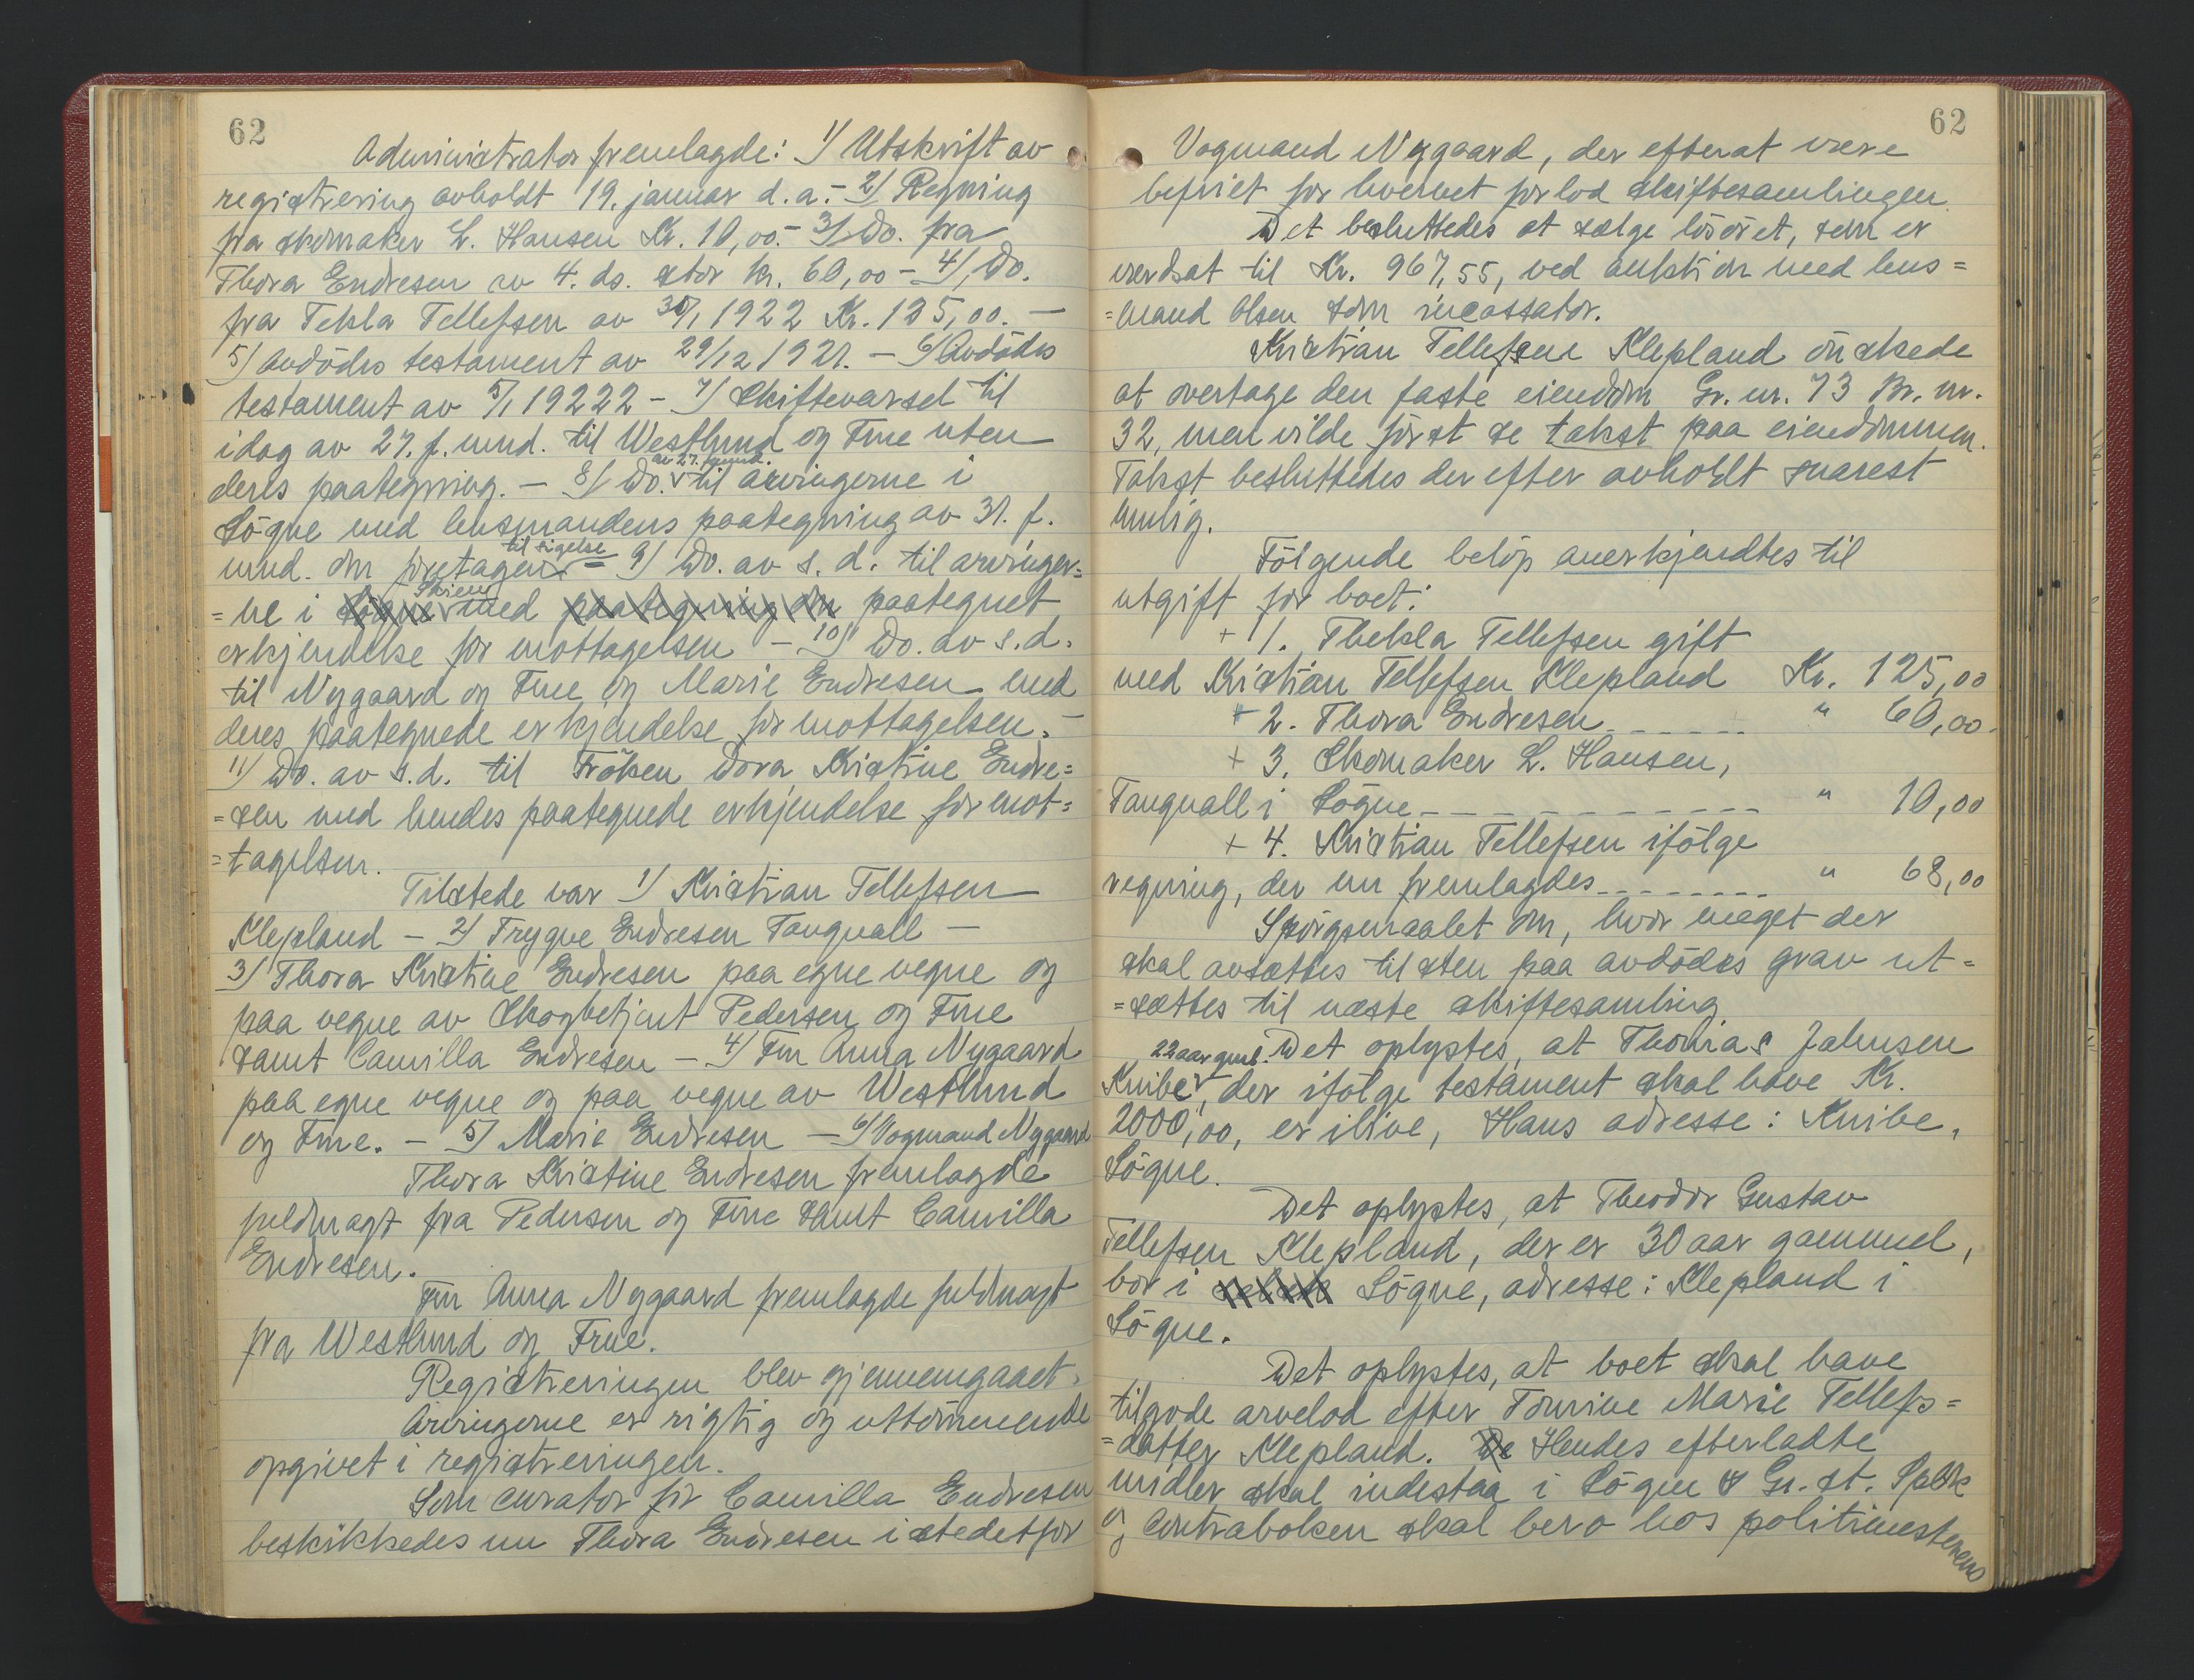 62
Administrator fremlagde: 1) Utskrift av
registrering avholdt 19. januar d. a. - 2) Regning
fra skomaker L. Hansen Kr. 10,00. - 3) Do. fra
Thora Endresen av 4. ds. stor kr. 60,00 - 4) Do.
fra Tekla Tellefsen av 30/1 1922 Kr. 125,00. -
5) Avdödes testament av 29/12 1921. - 6) Avdödes
testament av 5/1 19222 - 7) Skiftevarsel til
idag av 27. f. mnd. til Westlund og Frue uten
deres paategning. - 8) Do. av 27. f. mnd. til arvingerne i
Sögne med lensmandens paategning av 31. f.
mnd. om foretagen tilsigelse - 9) Do. av s. d. til arvinger=
=ne i Sögne Skien med paategning om paategnet
erkjendelse for mottagelsen - 10) Do. av s. d.
til Nygaard og Frue og Marie Endresen med
deres paategnede erkjendelse for mottagelsen. -
11) Do. av s. d. til Fröken Dora Kristine Endre=
=sen med hendes paategnede erkjendelse for mot=
=tagelsen.
Tilstede var 1) Kristian Tellefsen
Klepland - 2) Trygve Endresen Tangvall -
3) Thora Kristine Endresen paa egne vegne og
paa vegne av Skogbetjent Pedersen og Frue
samt Camilla Endresen - 4) Fru Anna Nygaard
paa egne vegne og paa vegne av Westlund
og Frue. - 5) Marie Endresen - 6) Vognmand Nygaard
Thora Kristine Endresen fremlagde
fuldmagt fra Pedersen og Frue samt Camilla
Endresen.
Fru Anna Nygaard fremlagde fuldmagt
fra Westlund og Frue.
Registreringen blev gjennemgaaet.
Arvingerne er rigtig og uttömmende
opgivet i registreringen.
Som curator for Camilla Endresen
beskikkedes nu Thora Endresen istedetfor
62
Vogmand Nygaard, der efterat være
befriet for hvervet forlod skiftesamlingen.
Det besluttedes at sælge lösöret, som er
værdsat til Kr. 967,55, ved auktion med lens=
=mand Olsen som incassator.
Kristian Tellefsen Klepland önskede
at overtage den faste eiendom Gr. nr. 73 Br. nr.
32, men vilde först se takst paa eiendommen.
Takst besluttedes derefter avholdt snarest
mulig.
Fölgende belöp anerkjendtes til
utgift for boet:
+ 1. Thekla Tellefsen gift
med Kristian Tellefsen Klepland Kr. 125,00
+ 2. Thora Endresen - - - - - " 60,00.
+ 3. Skomaker L. Hansen,
Tangvall i Sögne - - - - - - - - - - " 10,00
+ 4. Kristian Tellefsen ifölge
regning, der nu fremlagdes - - - - - - - - " 68,00
Spörgsmaalet om, hvor meget der
skal avsættes til sten paa avdödes grav ut=
=sættes til næste skiftesamling.
Det oplystes, at Thomas Jahnsen
Knibe, 22 aar gml. der ifölge testament skal have Kr.
2000,00, er ilive, Hans adresse: Knibe,
Sögne.
Det oplystes, at Theodor Gustav
Tellefsen Klepland, der er 30 aar gammel,
bor i Sögne, adresse: Klepland i
Sögne.
Det oplystes, at boet skal have
tilgode arvelod efter Tomine Marie Tellefs=
=datter Klepland. De Hendes efterladte
midler skal indestaa i Sögne & Gr. st. Spbk
og Contraboken skal bero hos politimesteren